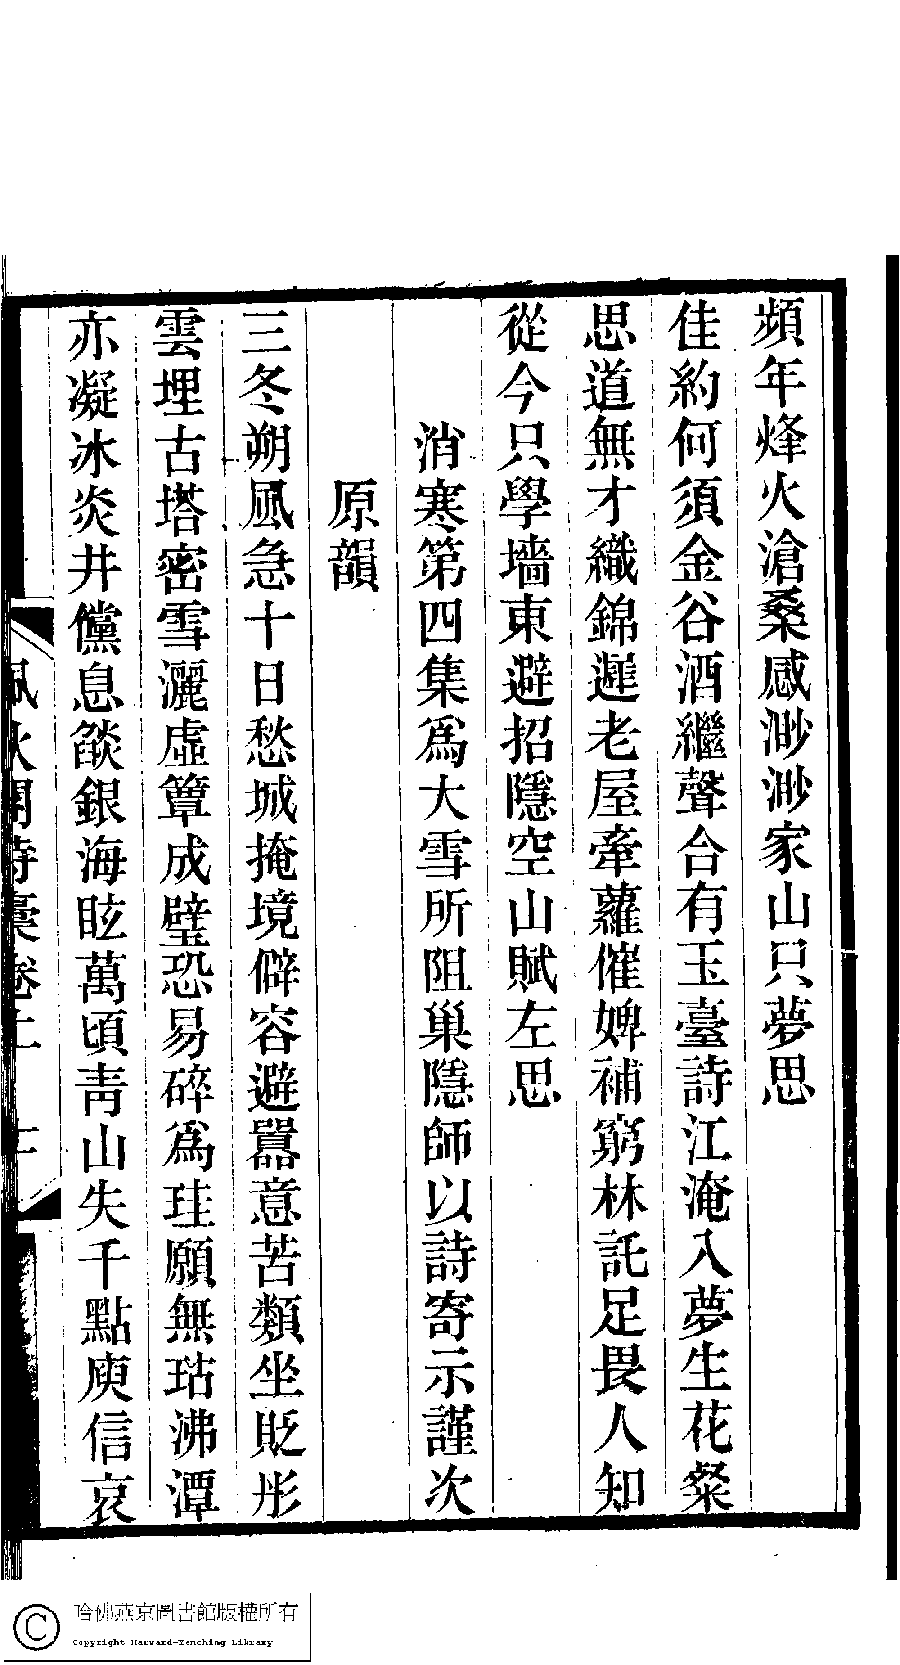 頻年烽火滄桑感渺渺家山只夢思
佳約何須金谷酒繼聲合有玉臺詩江淹入夢生花粲
思道無才織錦遲老屋牽蘿催婢補窮林託足畏人知
從今只學墻東避招隱空山賦左思
消寒第四集爲大雪所阻巢隱師以詩寄示謹次
原韻
三冬朔風急十日愁城掩境僻容避囂意苦類坐貶彤
雲埋古塔密雪灑虛簟成璧恐易碎爲珪願無玷沸潭
亦凝冰炎井儻息燄銀海眩萬頃靑山失千點庾信哀
詩稾卷上
哈佛燕京圖書館版權所有
Copyright Harvard-Yenching Library